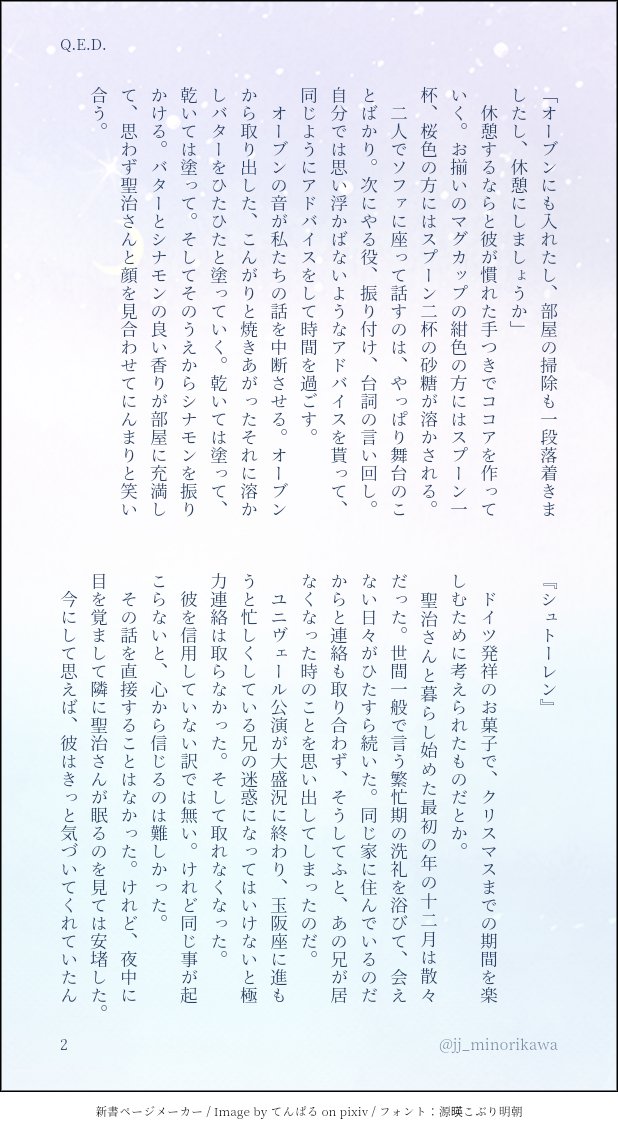 Q.E.D.
「オーブンにも入れたし、部屋の掃除も一段落着きま
したし、休憩にしましょうか」
　休憩するならと彼が慣れた手つきでココアを作って
いく。お揃いのマグカップの紺色の方にはスプーン一
杯、桜色の方にはスプーン二杯の砂糖が溶かされる。
　二人でソファに座って話すのは、やっぱり舞台のこ
とばかり。次にやる役、振り付け、台詞の言い回し。
自分では思い浮かばないようなアドバイスを貰って、
同じようにアドバイスをして時間を過ごす。
　オーブンの音が私たちの話を中断させる。オーブン
から取り出した、こんがりと焼きあがったそれに溶か
しバターをひたひたと塗っていく。乾いては塗って、
乾いては塗って。そしてそのうえからシナモンを振り
かける。バターとシナモンの良い香りが部屋に充満し
て、思わず聖治さんと顔を見合わせてにんまりと笑い
合う。
『シュトーレン』
　ドイツ発祥のお菓子で、クリスマスまでの期間を楽
しむために考えられたものだとか。
　聖治さんと暮らし始めた最初の年の十二月は散々
だった。世間一般で言う繁忙期の洗礼を浴びて、会え
ない日々がひたすら続いた。同じ家に住んでいるのだ
からと連絡も取り合わず、そうしてふと、あの兄が居
なくなった時のことを思い出してしまったのだ。
　ユニヴェール公演が大盛況に終わり、玉阪座に進も
うと忙しくしている兄の迷惑になってはいけないと極
力連絡は取らなかった。そして取れなくなった。
　彼を信用していない訳では無い。けれど同じ事が起
こらないと、心から信じるのは難しかった。
　その話を直接することはなかった。けれど、夜中に
目を覚まして隣に聖治さんが眠るのを見ては安堵した。
　今にして思えば、彼はきっと気づいてくれていたん
2
@jj_minorikawa
新書ページメーカー / Image by てんぱる on pixiv / フォント：源暎こぶり明朝